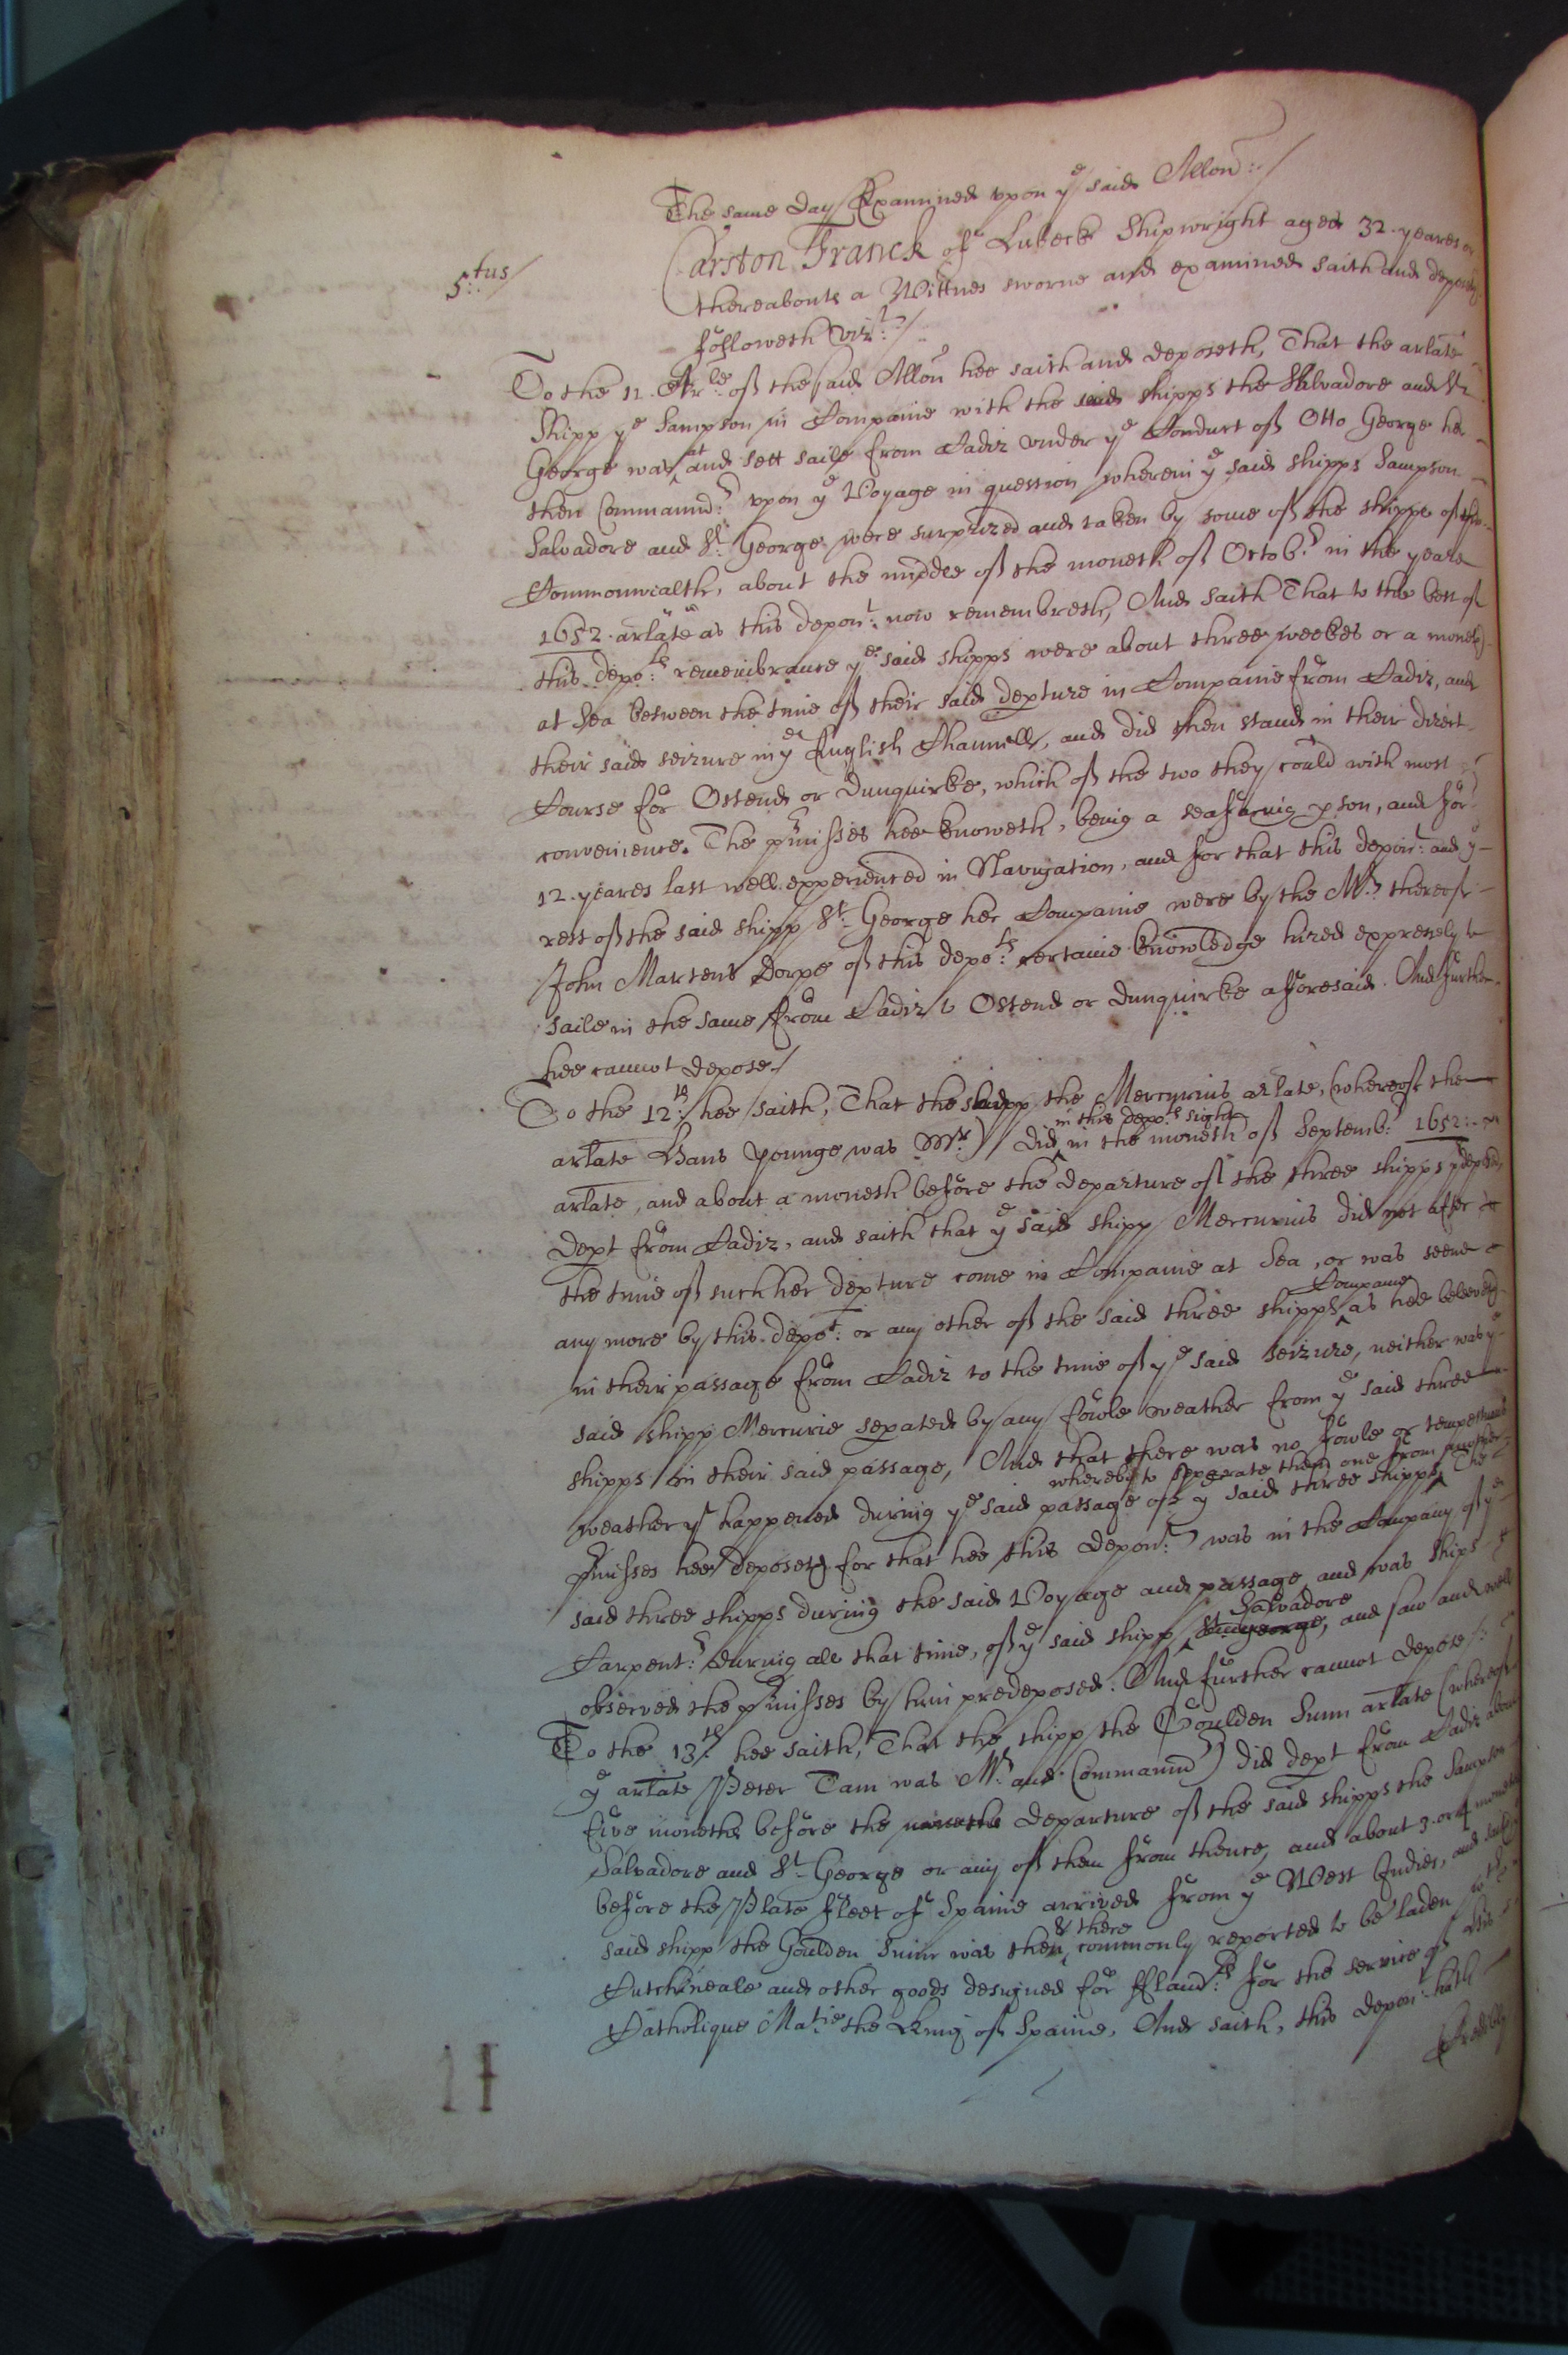 The same day Examined vpon ye said Allon:
5:tus
Carston Franck of Lubeck Shipwright aged 32. yeares or
thereabouts a Wittnes sworne and examined saith and deposeth
followeth vizt:
To the 11. Arle: of the said Allon hee saith and deposeth, That the arlate
Shipp ye Sampson in Companie with the said shipps the Salvadore and St:
George was and sett saile from Cadiz vnder ye Conduct of Otto George her
then Commaundr: vpon ye Voyage in question wherein ye said shipps Sampson
Salvadore and St: George were surprized and taken by some of the shipps of this
Commonwealth, about the middle of the moneth of Octobr: in the yeare
1652. arlate as this depont: now remembreth, And saith That to the best of
this depots: remembrance ye said shipps were about three weekes or a moneth
at Sea between the time of their said depture in Companie from Cadiz, and
their said seizure in ye English Channell, and did then stand in their direct
Course for Ostend or Dunquirke, which of the two they could with most
convenience. The pmisses hee knoweth, being a seafaring pson, and for
12. yeares last well experienced in Navigation, and for that this depont: and ye
rest of the said shipp St: George her Companie were by the Mr: thereof
John Martens Dorpe of this depots: certaine knowledge hired expressely to
saile in the same from Cadiz to Ostend or Dunquirke aforesaid. And further
hee cannot depose./
To the 12th: hee saith, That the shipp the Mercurius arlate, (whereof the
arlate Hans Younge was Mr:) did in this depots sight in the moneth of Septembr: 1652:
arlate, and about a moneth before the departure of the three shipps pdeposed
dept from Cadiz, and saith that ye said shipp Mercurius did not after
the time of such her depture come in Companie at Sea, or was seene
any more by this depot: or any other of the said three shipps Companie as hee beleeveth
in their passage from Cadiz to the time of ye said seizure, neither was ye
said shipp Mercurie sepated by any fowle weather from ye said three
shipps in their said passage, And that there was no fowle or tempestuous
weather yt happened during ye said passage of ye said three shipps whereby to seperate them one from another. The
pmisses hee deposeth for that hee this depont: was in the Company of ye
said three shipps during the said Voyage and passage and was ships
Carpentr: during all that time, of ye said shipp St: George Salvadore, and saw and well
observed the pmisses by him predeposed. And further cannot depose:
To the 13th: hee saith, That the shipp the Goulden Sunn arlate (whereof
ye arlate Peter Tam was Mr: and Commaundr) did dept from Cadiz about
five moneths before the departure of the said shipps the Sampson
Salvadore and St: George or any of them from thence, and about 3. or 4 moneths
before the Plate fleet of Spaine arrived from ye West Indies, and saith the
said shipp the Goulden Sunn was then & there commonly reported to be laden wth
Cutcheneale and other goods designed for Flandrs: for the service of his
Catholique Matie the King of Spaine, And saith, this depont hath
17